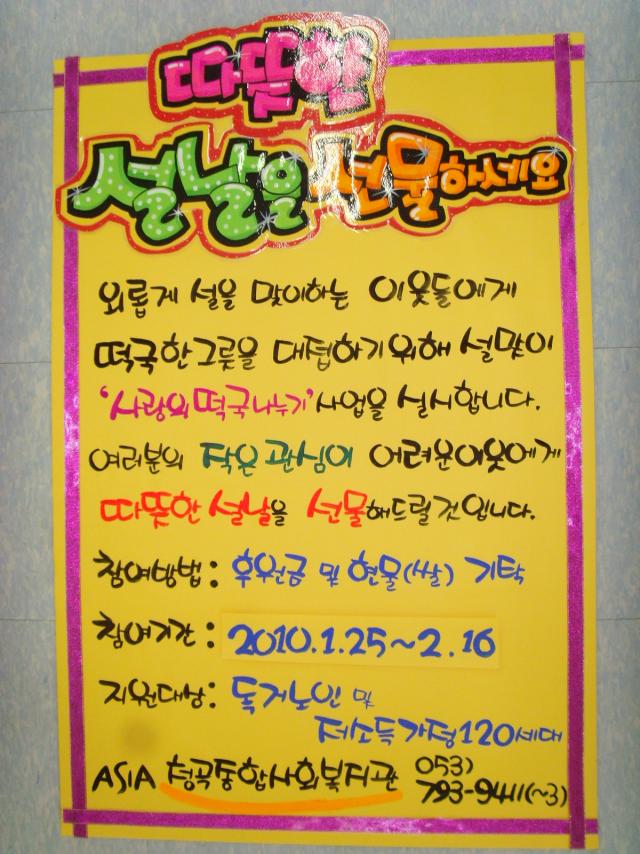 따뜻한
설날을 선물하세요
외롭게 설을 맞이하는 이웃들에게
떡국한그릇을 대접하기위해 설맞이
'사랑의떡국나누기'사업을 실시합니다.
여러분의 작은관심이 어려운이웃에게
따뜻한 설날을 선물해드릴것입니다.
참여방법: 후원금 및 현물(쌀) 기탁
참여기간: 2010.1.25~2.16
지원대상: 독거노인 및
저소득가정120세대
ASIA 청곡종합사회복지관 053)
793-9411(~3)